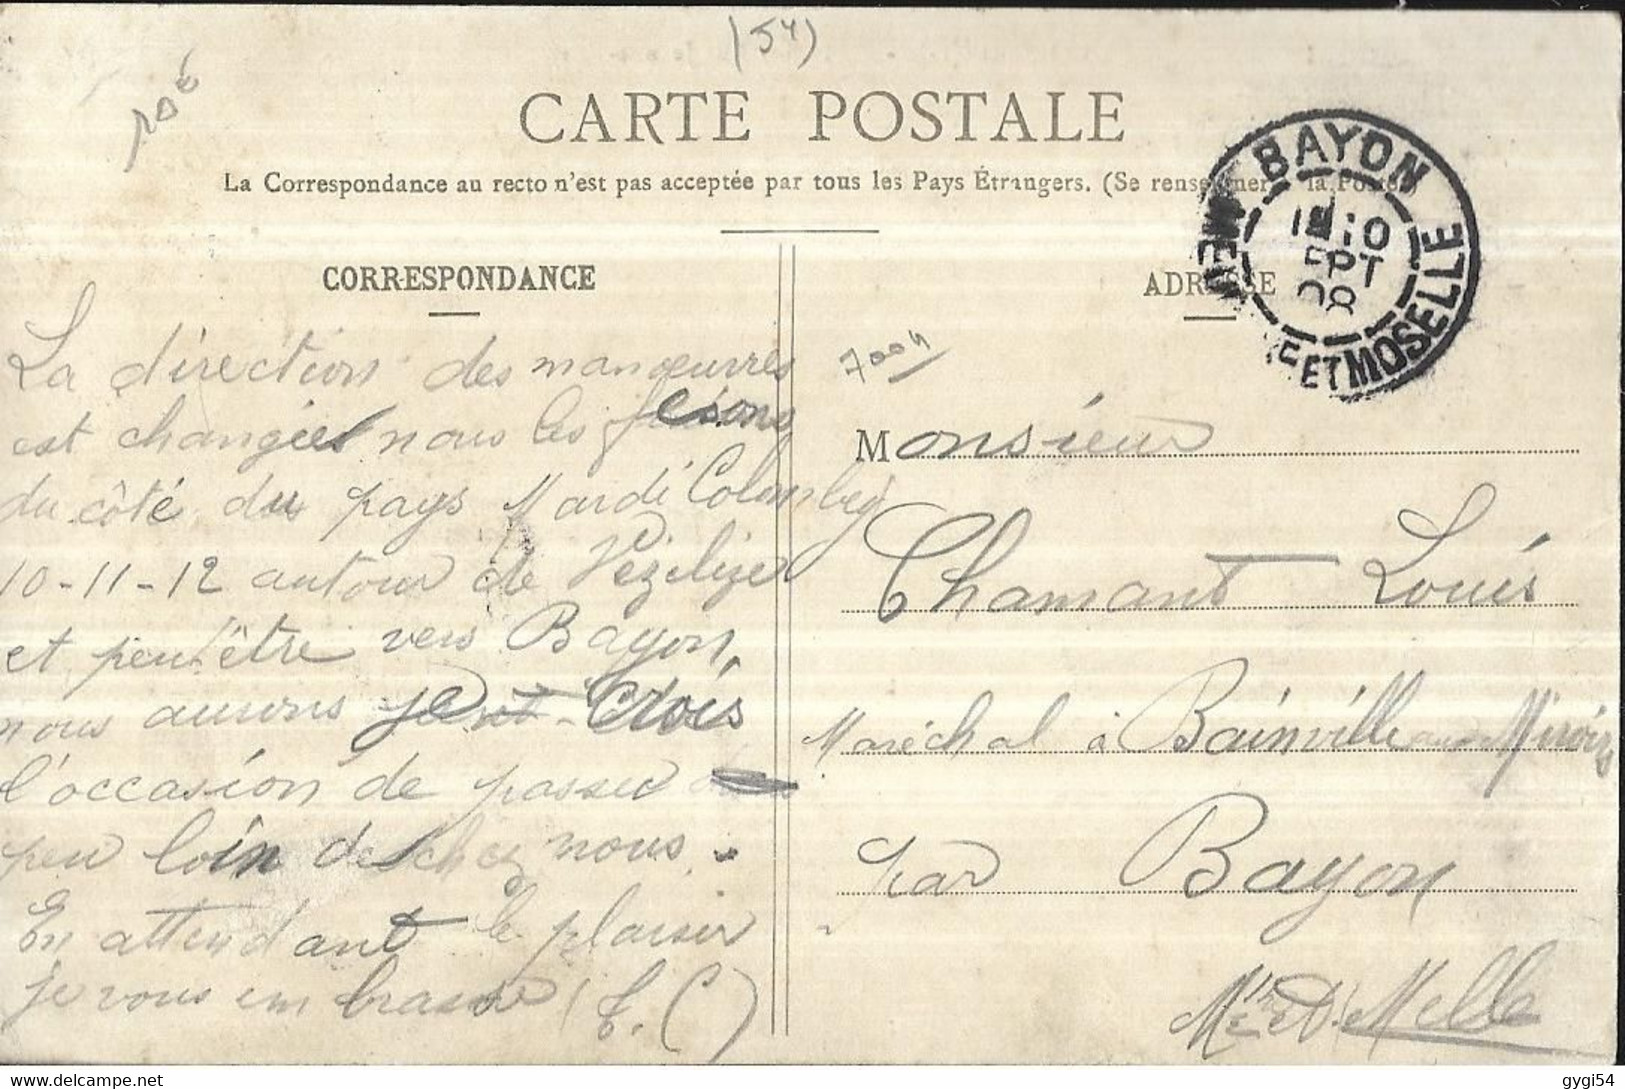 (54)
CARTE POSTALE
La Correspondance au recto n'est pas acceptée par tous les Pays Étrangers. (Se renseigner à la Poste)
BAYON
10
SEPT
08
MEURTHE ET MOSELLE
CORRESPONDANCE
La direction des manœuvres
est changée nous les fesons
du côté du pays Mardi Colombey
10-11-12 autour de Vézelize
et peut être vers Bayon,
nous aurons je crois
l'occasion de passer
peu loin de chez nous.
En attendant le plaisir
je vous embrasse
ADRESSE
7004
Monsieur
Chamant Louis
Maréchal à Bainville aux Miroirs
par Bayon
Mthe et Melle
gygi54